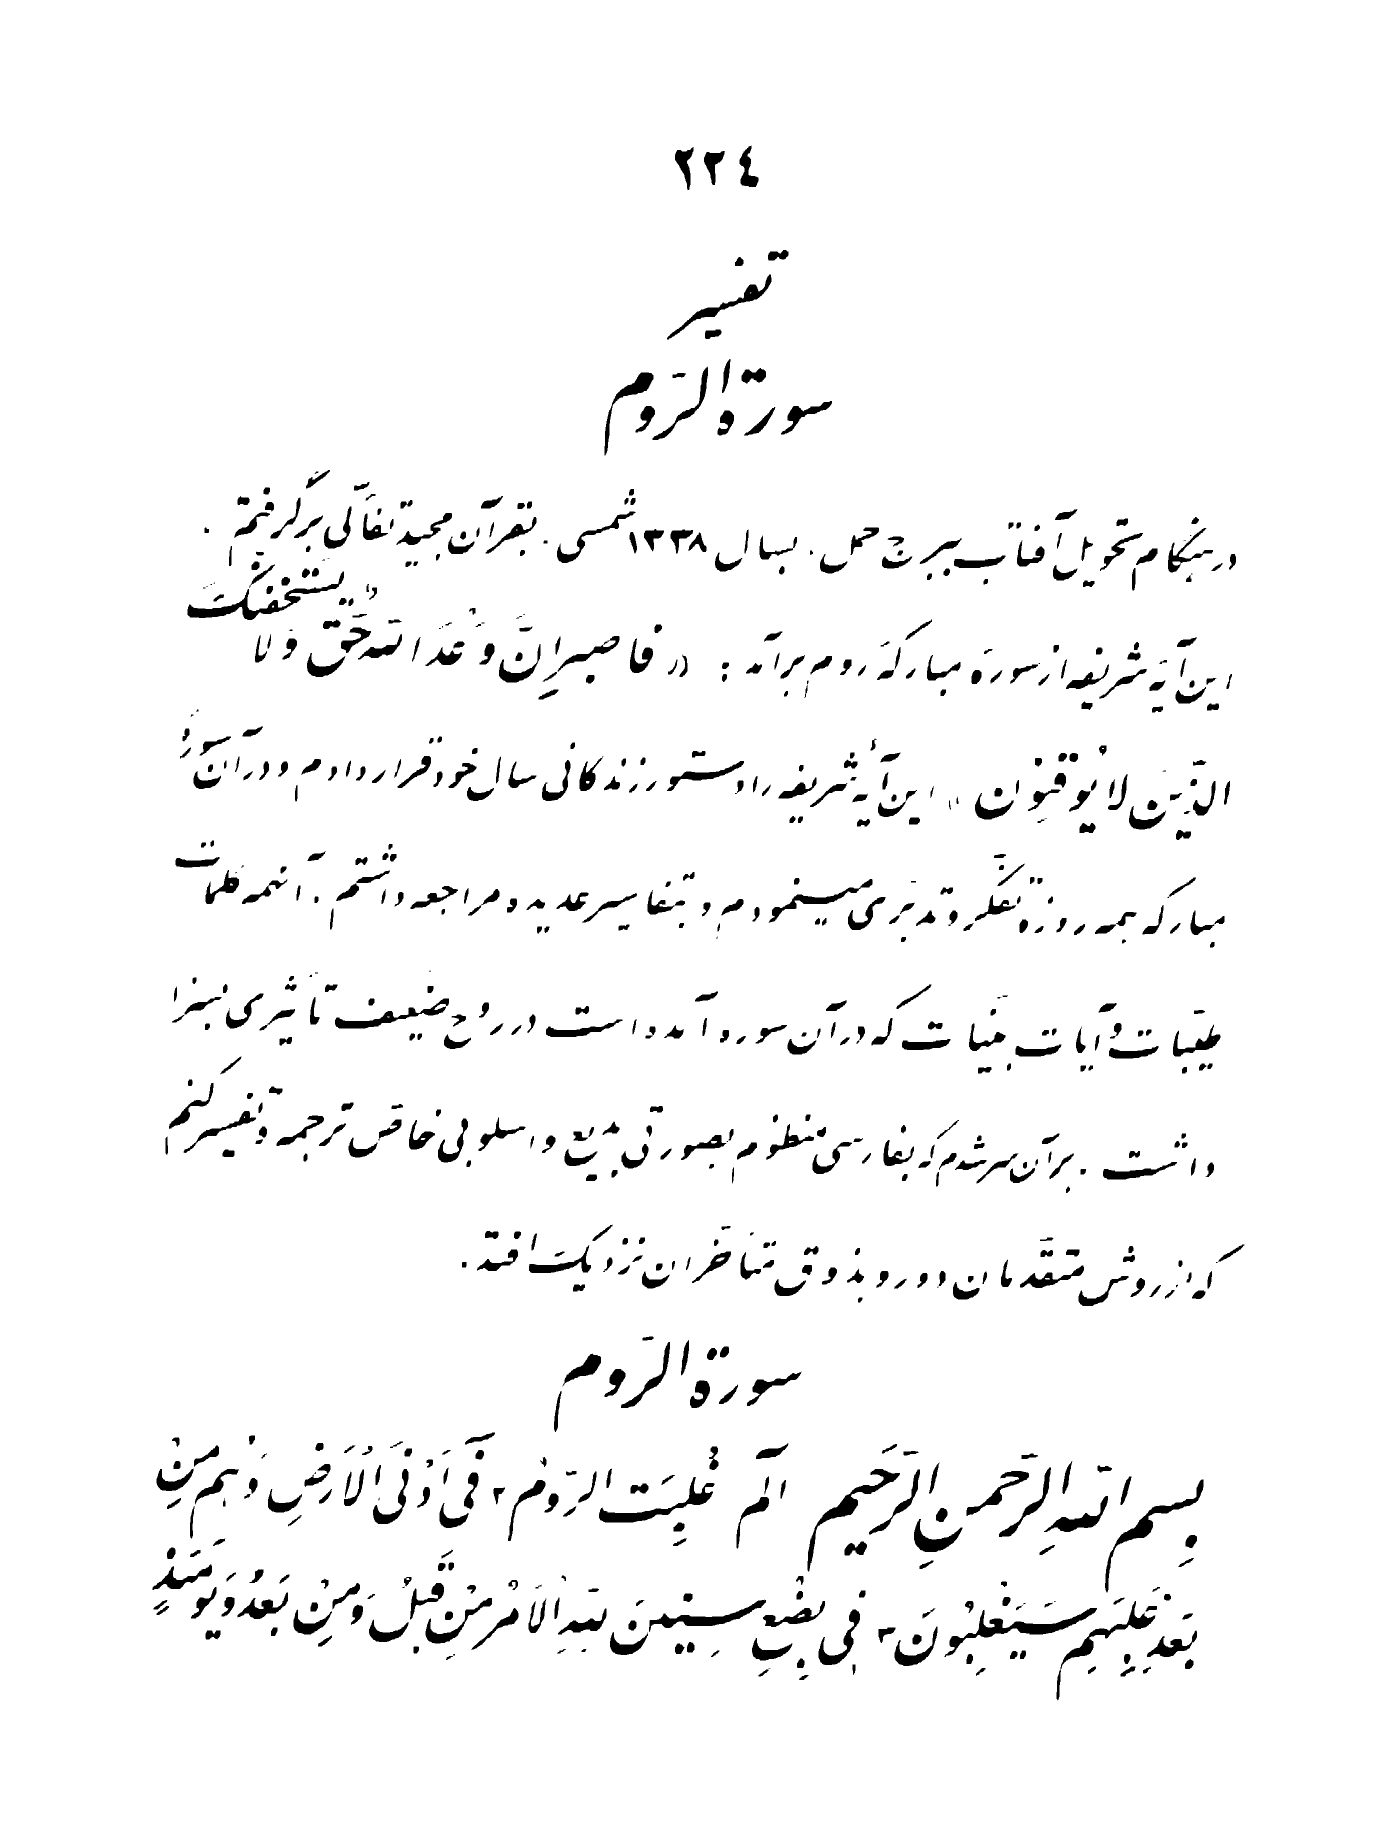 ٢٢٤
تفسیر
سورة الرّوم
در هنگام تحویل آفتاب ببرج حمل . بسال ١٣٣٨ شمسی . بقرآن مجید تفأّلی برگرفتم .
این آیهٔ شریفه از سورهٔ مبارکهٔ روم برآمد : « فاصبر اِنَّ وَعْدَ اللّه حَقّ وَلا یَستَخفنّکَ
الذّینَ لا یُوقنِوُن » این آیهٔ شریفه را دستور زندگانی سال خود قرار دادم و در آن سورهٔ
مبارکه همه روزه تفکّر و تدبّری مینمودم و بتفاسیر عدیده مراجعه داشتم . آنهمه کلمات
طیّبات و آیات بیّنات که در آن سوره آمده است در روح ضعیف تأثیری بسزا
داشت . بر آن سر شدم که بفارسی منظوم بصورتی بدیع و اسلوبی خاصّ ترجمه و تفسیر کنم
که از روش متقدّمان دور و بذوق متأخّران نزدیک افتد .
سورة الرّوم
بِسم اللّهِ الرّحمنِ الرَّحیم الٓم غُلِبَت الرّومُ ٢ فی اَدْنَی اْلاَرضِ وَ هُم مِنْ
بَعْدِ غَلَبِهِم سَیَغْلِبُونَ ٣ فی بِضْعِ سِنینَ لِلّهِ اْلاَمْرُ مِنْ قَبلُ وَ مِنْ بَعدُ وَ یَومَئذٍ